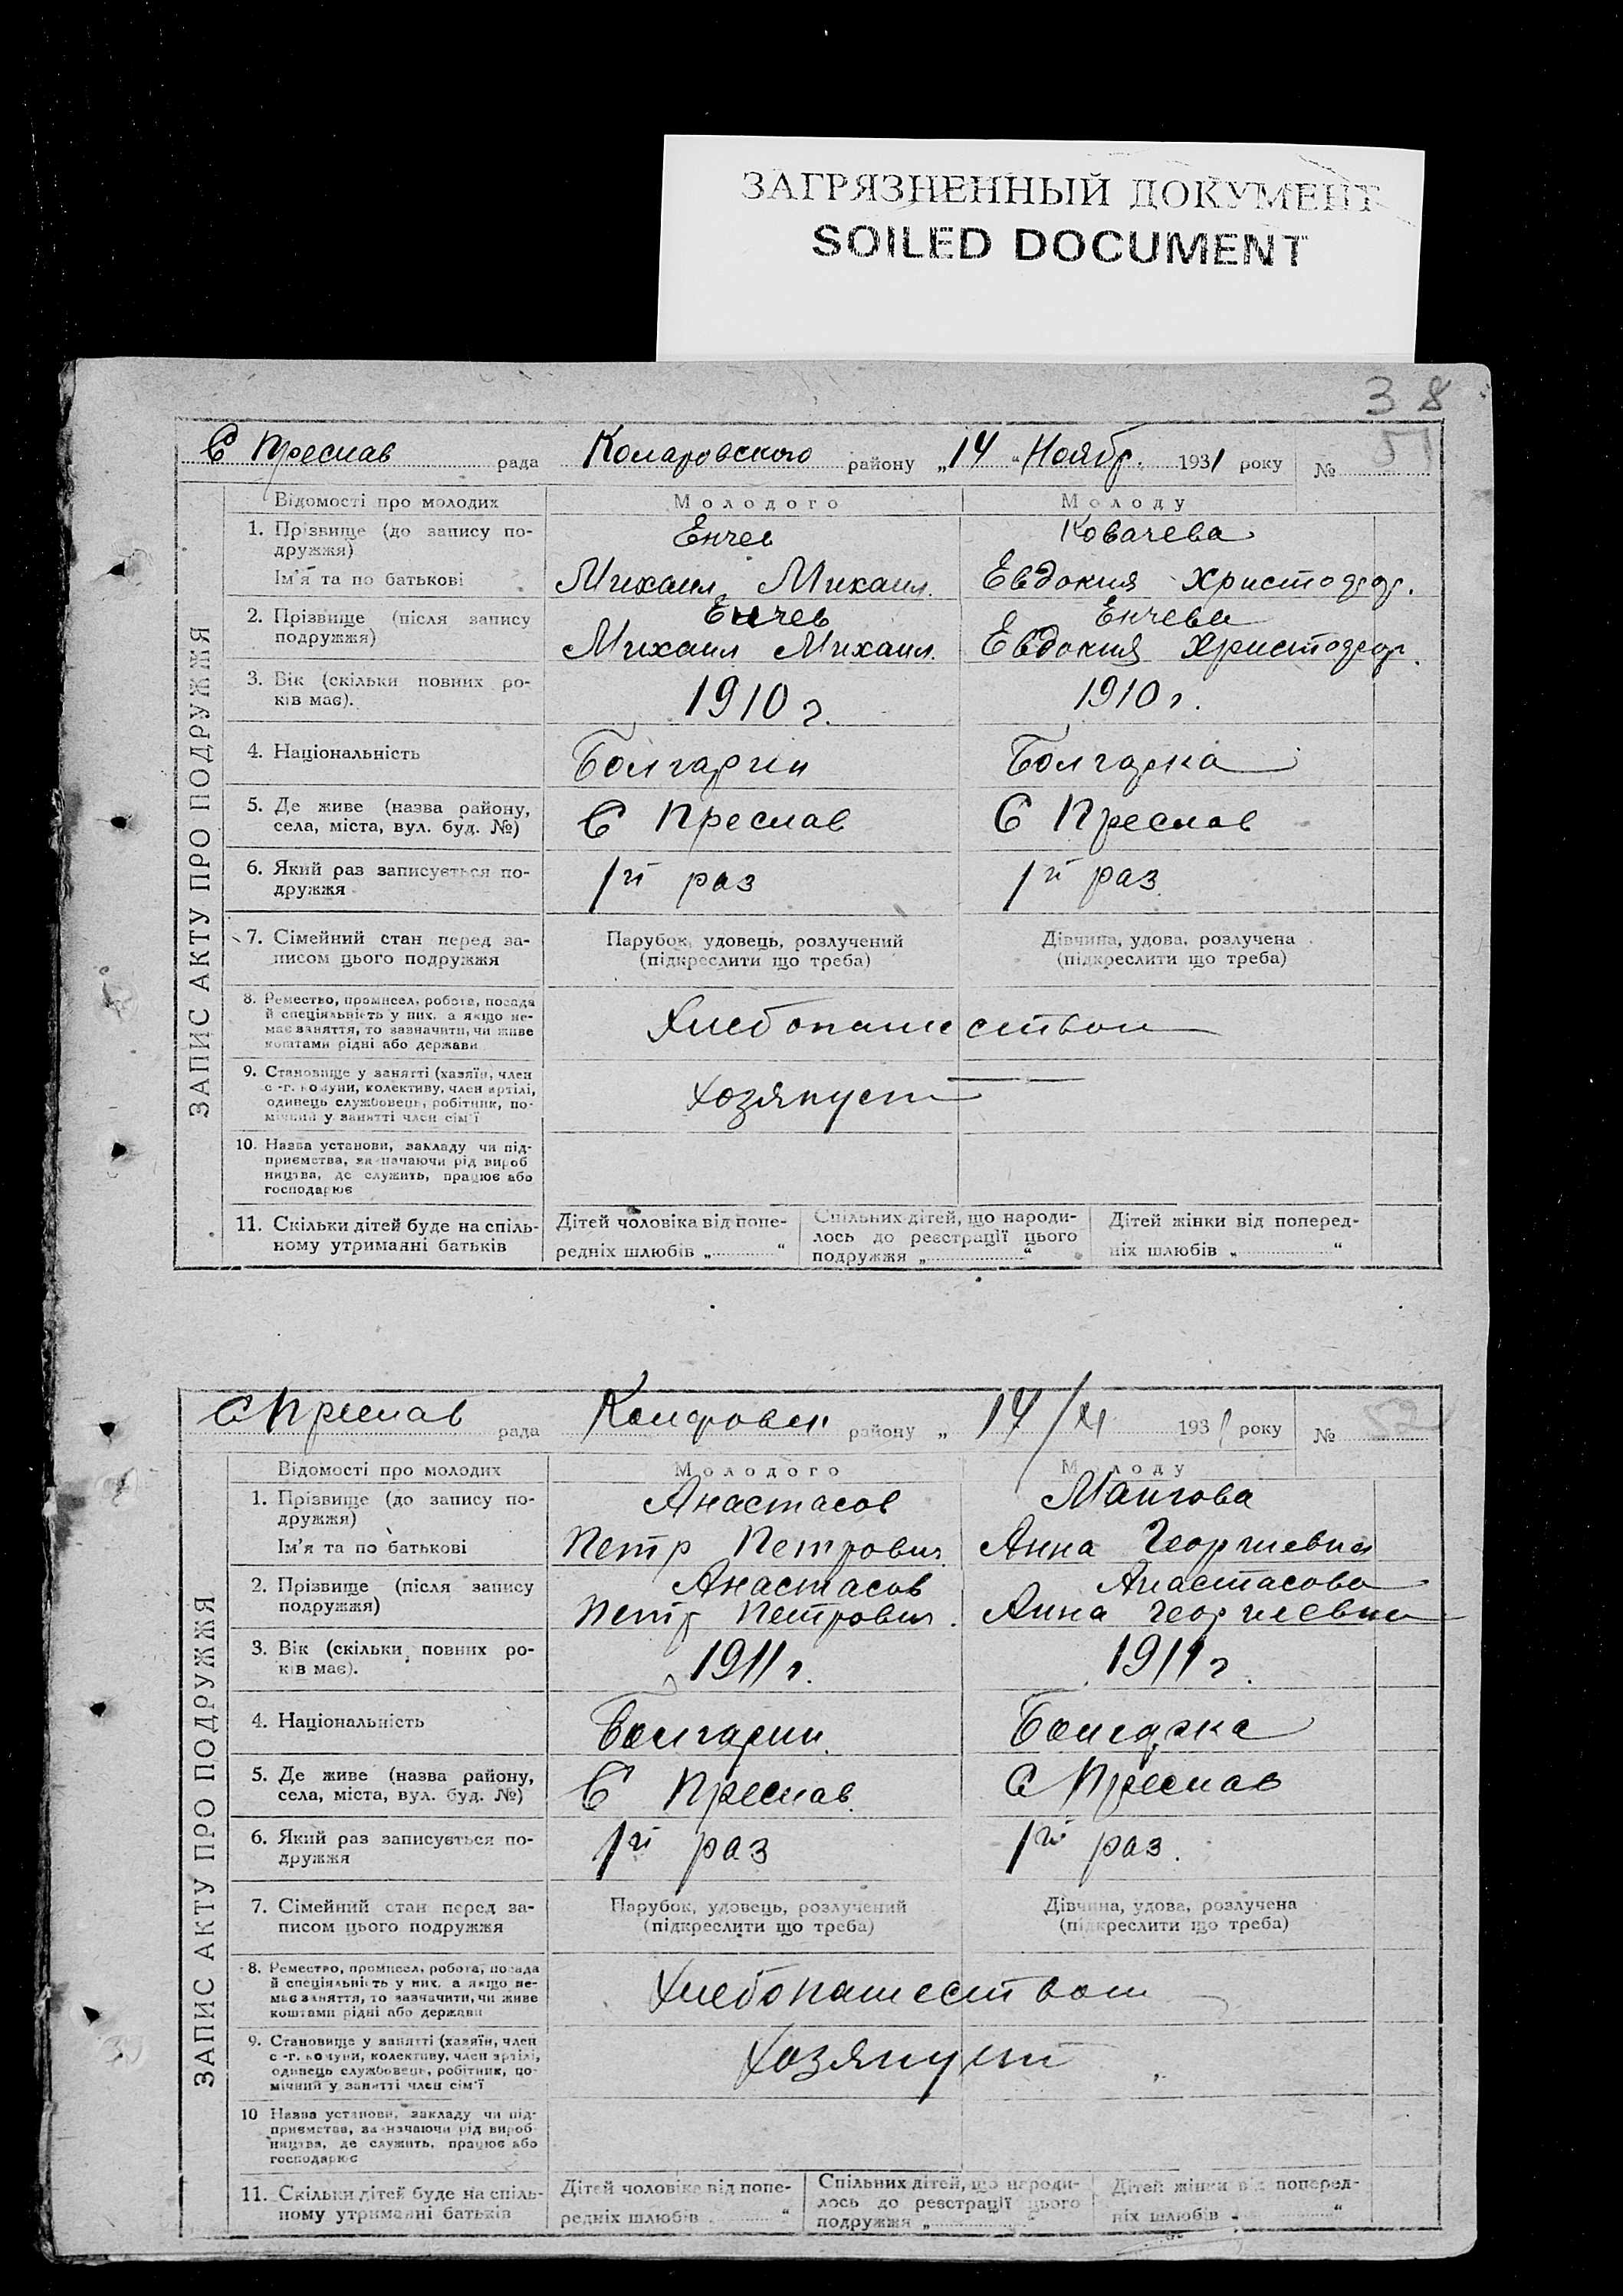 ЗАГРЯЗНЕННЫЙ ДОКУМЕНТ
SOILED DOCUMENT
38
51
С Преслав рада Коларовского району „14“ Ноябр. 1931 року №
ЗАПИС АКТУ ПРО ПОДРУЖЖЯ
Відомості про молодих Молодого Молоду
1. Прізвище (до запису по-
дружжя) Енчев Ковачева
Ім'я та по батькові Михаил Михаил. Евдокия Христофор.
2. Прізвище (після запису Енчев Енчева
подружжя) Михаил Михаил. Евдокия Христофор.
3. Вік (скільки повних ро-
ків має). 1910 г. 1910 г.
4. Національність Болгарин Болгарка
5. Де живе (назва району,
села, міста, вул. буд. №) С Преслав С Преслав
6. Який раз записується по-
дружжя 1й раз 1й раз
7. Сімейний стан перед за- Парубок, удовець, розлучений Дівчина, удова, розлучена
писом цього подружжя (підкреслити що треба) (підкреслити що треба)
8. Ремество, промисел, робота, посада
й спеціяльність у них, а якщо не-
має заняття, то зазначити, чи живе
коштами рідні або держави
Хлебопашеством
9. Становище у занятті (хазяїн, член
с.-г. комуни, колективу, член артілі,
одинець службовець, робітник, по-
мічний у занятті член сім'ї
Хозянует
10. Назва установи, закладу чи під-
приємства, зазначаючи рід вироб
ництва, де служить, працює або
господарює
11. Скільки дітей буде на спіль-
ному утриманні батьків
Дітей чоловіка від попе-
редніх шлюбів „ “
Спільних дітей, що народи-
лось до реєстрації цього
подружжя „ “
Дітей жінки від поперед-
ніх шлюбів „ “
С Преслав рада Коларовск району „ 14/XI 1931 року № 52
ЗАПИС АКТУ ПРО ПОДРУЖЖЯ
Відомості про молодих Молодого Молоду
1. Прізвище (до запису по-
дружжя) Анастасов Мангова
Ім'я та по батькові Петр Петрович Анна Георгиевна
2. Прізвище (після запису Анастасов Анастасова
подружжя) Петр Петрович. Анна Георгиевна
3. Вік (скільки повних ро-
ків має). 1911 г. 1911 г.
4. Національність Болгарин. Болгарка
5. Де живе (назва району,
села, міста, вул. буд. №) С Преслав. С Преслав
6. Який раз записується по-
дружжя 1й раз 1й раз.
7. Сімейний стан перед за- Парубок, удовець, розлучений Дівчина, удова, розлучена
писом цього подружжя (підкреслити що треба) (підкреслити що треба)
8. Ремество, промисел, робота, посада
й спеціяльність у них, а якщо не-
має заняття, то зазначити, чи живе
коштами рідні або держави
Хлебопашеством
9. Становище у занятті (хазяїн, член
с.-г. комуни, колективу, член артілі,
одинець службовець, робітник, по-
мічний у занятті член сім'ї
Хозянует
10 Назва установи, закладу чи під-
приємства, зазначаючи рід вироб-
ництва, де служить, працює або
господарює
11. Скільки дітей буде на спіль-
ному утриманні батьків
Дітей чоловіка від попе-
редніх шлюбів „ “
Спільних дітей, що народи-
лось до реєстрації цього
подружжя „ “
Дітей жінки від поперед-
ніх шлюбів „ “